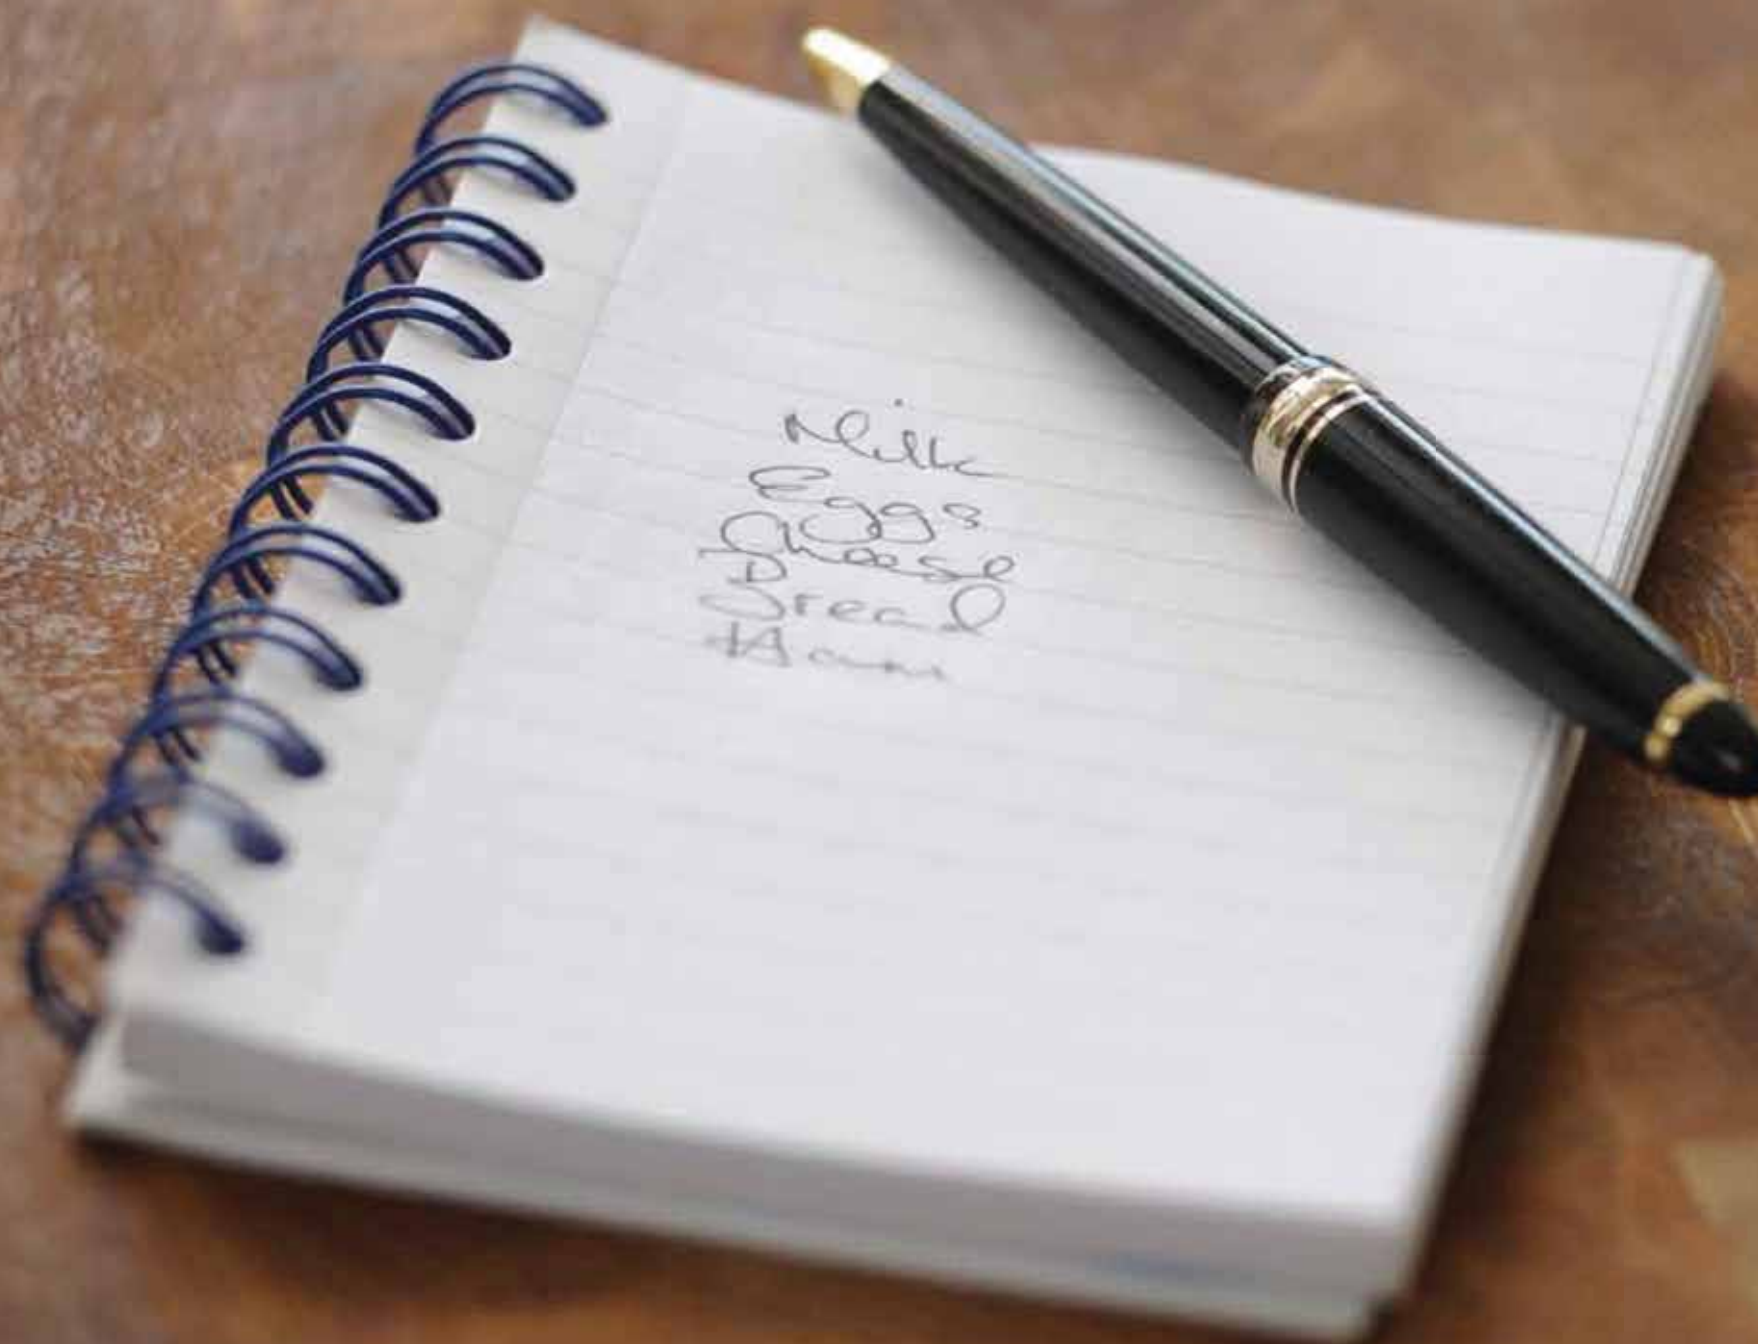 Milk
Eggs
Cheese
Bread
Ham